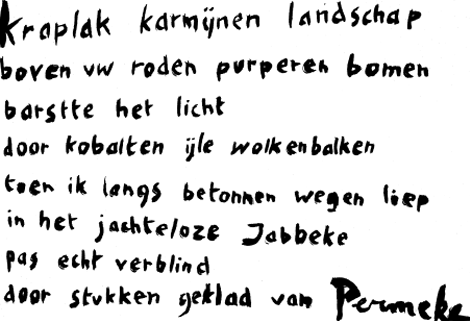 kraplak karmijnen landschap
boven uw roden purperen bomen
barstte het licht
door kobalten ijle wolkenbalken
toen ik langs betonnen wegen liep
in het jachteloze Jabbeke
pas echt verblind
door stukken geklad van Permeke